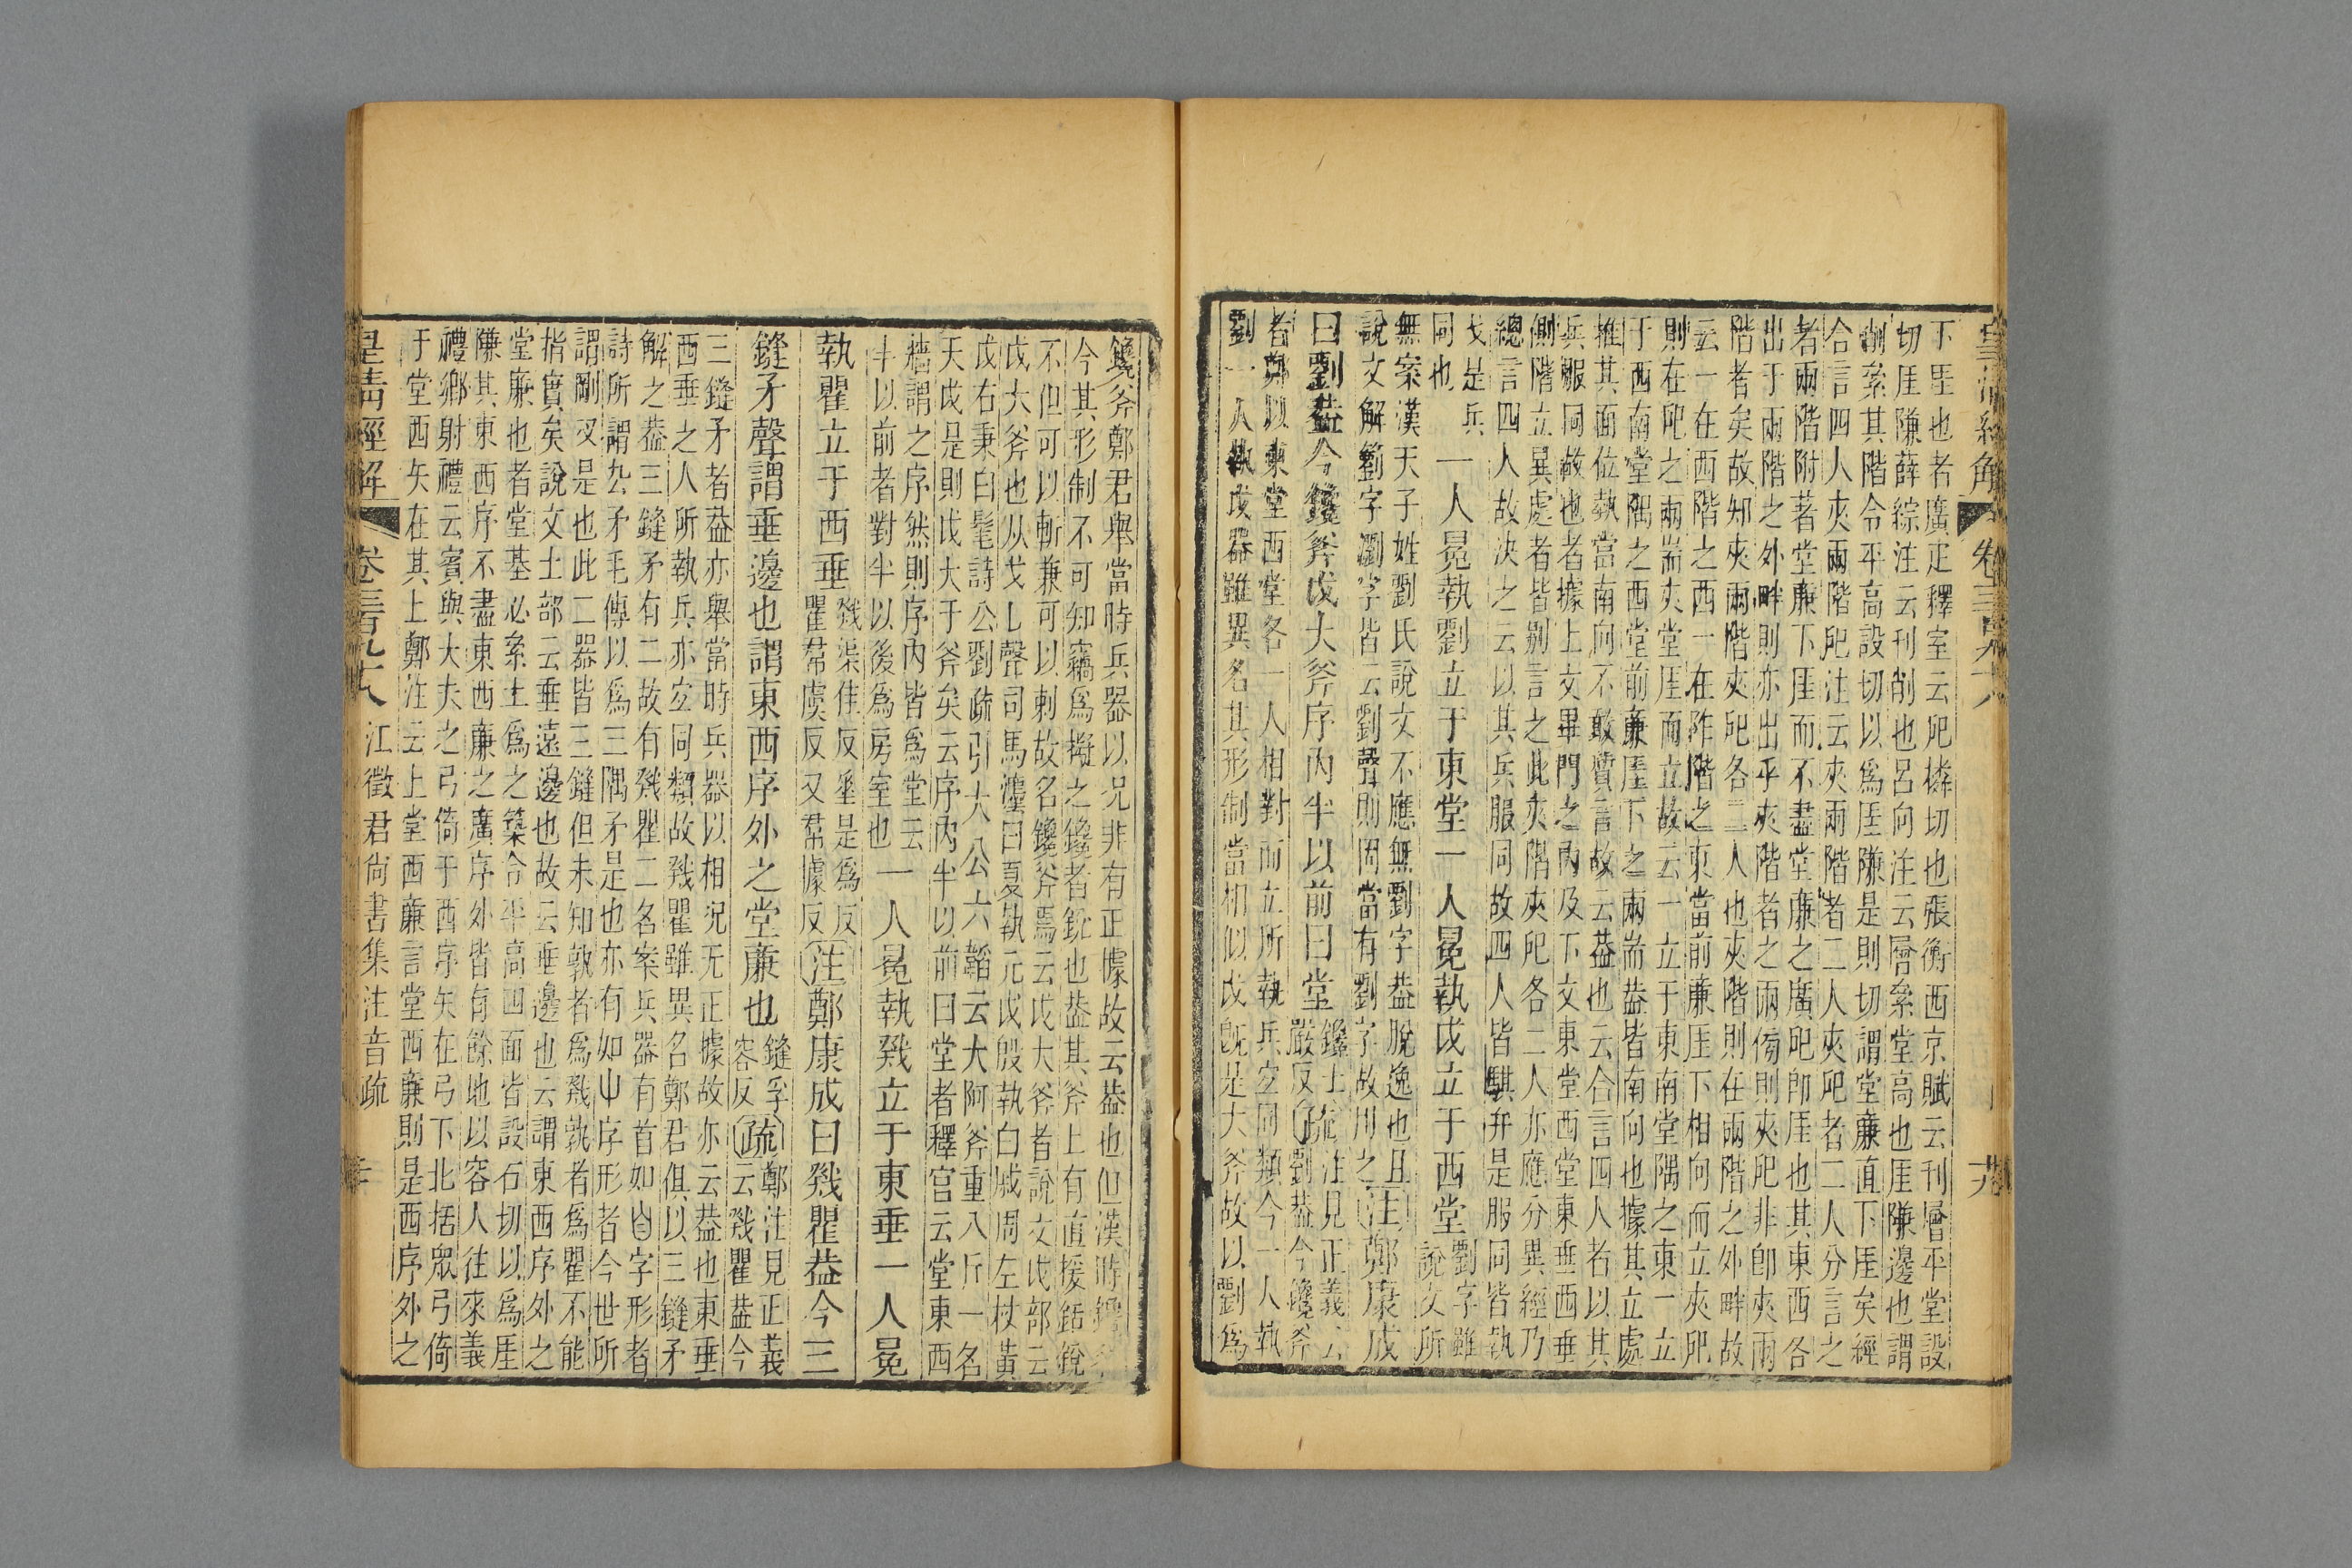 皇清經解 卷三百九十八 十九
下厓也者廣疋釋室云戺橉切也張衡西京賦云刊層平堂設
切厓隒薛綜注云刊削也呂向注云層絫堂高也厓隒邊也謂
削絫其階令平高設切以爲厓隒是則切謂堂廉直下厓矣經
合言四人夾兩階戺注云夾兩階者二人夾戺者二人分言之
者兩階附著堂廉下厓而不盡堂廉之廣戺卽厓也其東西各
出于兩階之外畔則亦出乎夾階者之兩㫄則夾戺非卽夾兩
階者矣故知夾兩階夾戺各二人也夾階則在兩階之外畔故
云一在西階之西一在阼階之東當前廉厓下相向而立夾戺
則在戺之兩耑夾堂厓而立故云一立于東南堂隅之東一立
于西南堂隅之西堂前廉厓下之兩耑葢皆南向也據其立處
推其面位埶當南向不敢質言故云葢也云合言四人者以其
兵服同故也者據上文畢門之內及下文東堂西堂東垂西垂
側階立異處者皆別言之此夾階夾戺各二人亦應分異經乃
總言四人故決之云以其兵服同故四人皆騏弁是服同皆執
戈是兵
同也
一人冕執劉立于東堂一人冕執戉立于西堂
劉字雖
說文所
無案漢天子姓劉氏說文不應無劉字葢脫逸也且
說文解籀字瀏字皆云劉聲則固當有劉字故用之
注鄭康成
曰劉葢今鑱斧戉大斧序內半以前曰堂
鑱士
嚴反
疏
注見正義云
劉葢今鑱斧
者鄭以東堂西堂各一人相對而立所執兵宜同類今一人執
劉一人執戉器雖異名其形制當相似戉旣是大斧故以劉爲
鑱斧鄭君舉當時兵器以況非有正據故云葢也但漢時鑱斧
今其形制不可知竊爲擬之鑱者銳也葢其斧上有直援銛銳
不但可以斬兼可以刺故名鑱斧焉云戉大斧者說文戉部云
戉大斧也从戈乚聲司馬灋曰夏執元戉殷執白戚周左杖黃
戉右秉白髦詩公劉疏引大公六韜云大阿斧重八斤一名
天戉是則戉大于斧矣云序內半以前曰堂者釋宮云堂東西
牆謂之序然則序內皆爲堂云
半以前者對半以後爲房室也
一人冕執戣立于東垂一人冕
執瞿立于西垂
戣渠隹反垂是爲反
瞿帬虞反又帬據反
注鄭康成曰戣瞿葢今三
鏠矛聲謂垂邊也謂東西序外之堂廉也
鏠孚
容反
疏
鄭注見正義
云戣瞿葢今
三鏠矛者葢亦舉當時兵器以相況无正據故亦云葢也東垂
西垂之人所執兵亦宜同類故戣瞿雖異名鄭君俱以三鏠矛
解之葢三鏠矛有二故有戣瞿二名案兵器有首如凷字形者
詩所謂厹矛毛傳以爲三隅矛是也亦有如屮序形者今世所
謂剛叉是也此二器皆三鏠但未知孰者爲戣孰者爲瞿不能
指實矣說文土部云垂遠邊也故云垂邊也云謂東西序外之
堂廉也者堂基必絫土爲之築令平高四面皆設石切以爲厓
隒其東西序不盡東西廉之廣序外皆有餘地以容人往來義
禮鄉射禮云賓與大夫之弓倚于西序矢在弓下北括眾弓倚
于堂西矢在其上鄭注云上堂西廉言堂西廉則是西序外之
皇清經解 卷三百九十八 江徵君尚書集注音疏 二十